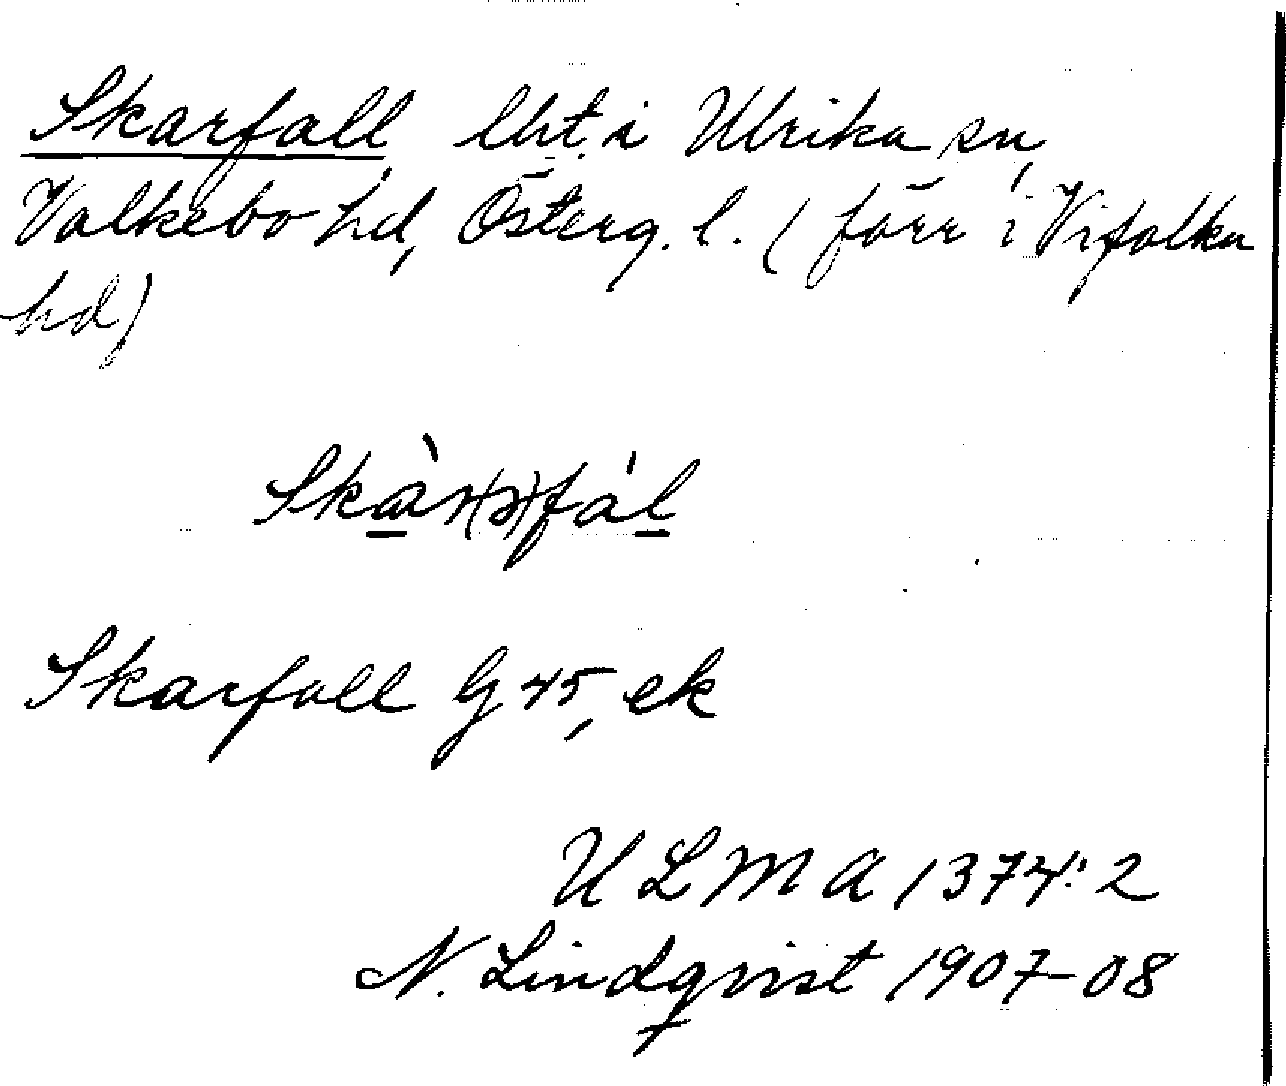 Skarfall, lht. i Ulrika sn,
Valkebo hd, Österg. l. (förr i Vifolka
hd)
Skàr(ə)fál
Skarfall G 45, ek
ULMA 1374:2
N. Lindqvist 1907-08